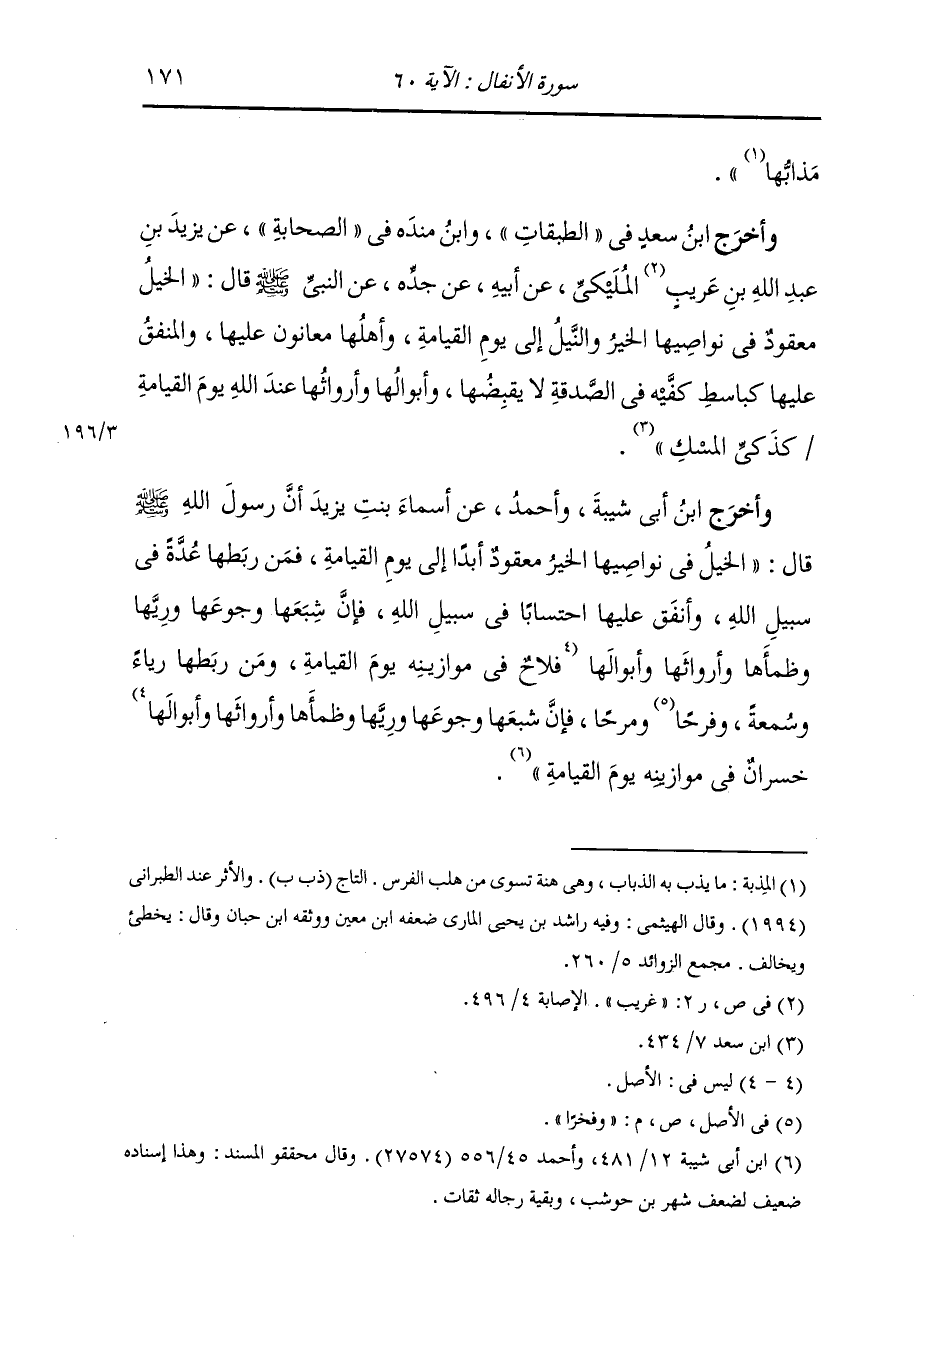 سورة الأنفال : الآية ٦٠ ١٧١
مَذابُّها(١)» .
وأخرَج ابنُ سعدٍ فى « الطبقاتِ » ، وابنُ مندَه فى « الصحابةِ » ، عن يزيدَ بنِ
عبدِ اللهِ بنِ عَريبٍ(٢) المُلَيْكىِّ ، عن أبيهِ ، عن جدِّه ، عن النبىِّ ﷺ قال : « الخيلُ
معقودٌ فى نواصِيها الخيرُ والنَّيلُ إلى يومِ القيامةِ ، وأهلُها معانون عليها ، والمنفقُ
عليها كباسطِ كفَّيْه فى الصَّدقةِ لا يقبِضُها ، وأبوالُها وأرواثُها عندَ اللهِ يومَ القيامةِ
/ كذَكىِّ المسْكِ »(٣) . ١٩٦/٣
وأخرَج ابنُ أبى شيبةَ ، وأحمدُ ، عن أسماءَ بنتِ يزيدَ أنَّ رسولَ اللهِ ﷺ
قال : « الخيلُ فى نواصِيها الخيرُ معقودٌ أبدًا إلى يومِ القيامةِ ، فمَن ربَطها عُدَّةً فى
سبيلِ اللهِ ، وأنفَق عليها احتسابًا فى سبيلِ اللهِ ، فإنَّ شِبَعَها وجوعَها ورِيَّها
وظمأَها وأرواثَها وأبوالَها (٤فلاحٌ فى موازينِه يومَ القيامةِ ، ومَن ربَطها رياءً
وسُمعةً ، وفرحًا(٥) ومرحًا ، فإنَّ شبعَها وجوعَها ورِيَّها وظمأَها وأرواثَها وأبوالَها٤)
خسرانٌ فى موازينِه يومَ القيامةِ »(٦) .
(١) المِذبة : ما يذب به الذباب ، وهى هنة تسوى من هلب الفرس . التاج (ذب ب) . والأثر عند الطبرانى
(١٩٩٤) . وقال الهيثمى : وفيه راشد بن يحيى المارى ضعفه ابن معين ووثقه ابن حبان وقال : يخطئ
ويخالف . مجمع الزوائد ٥/ ٢٦٠.
(٢) فى ص ، ر ٢: « غريب» . الإصابة ٤/ ٤٩٦.
(٣) ابن سعد ٧/ ٤٣٤.
(٤ - ٤) ليس فى : الأصل .
(٥) فى الأصل ، ص ، م : « وفخرًا» .
(٦) ابن أبى شيبة ١٢/ ٤٨١، وأحمد ٥٥٦/٤٥ (٢٧٥٧٤) . وقال محققو المسند : وهذا إسناده
ضعيف لضعف شهر بن حوشب ، وبقية رجاله ثقات .